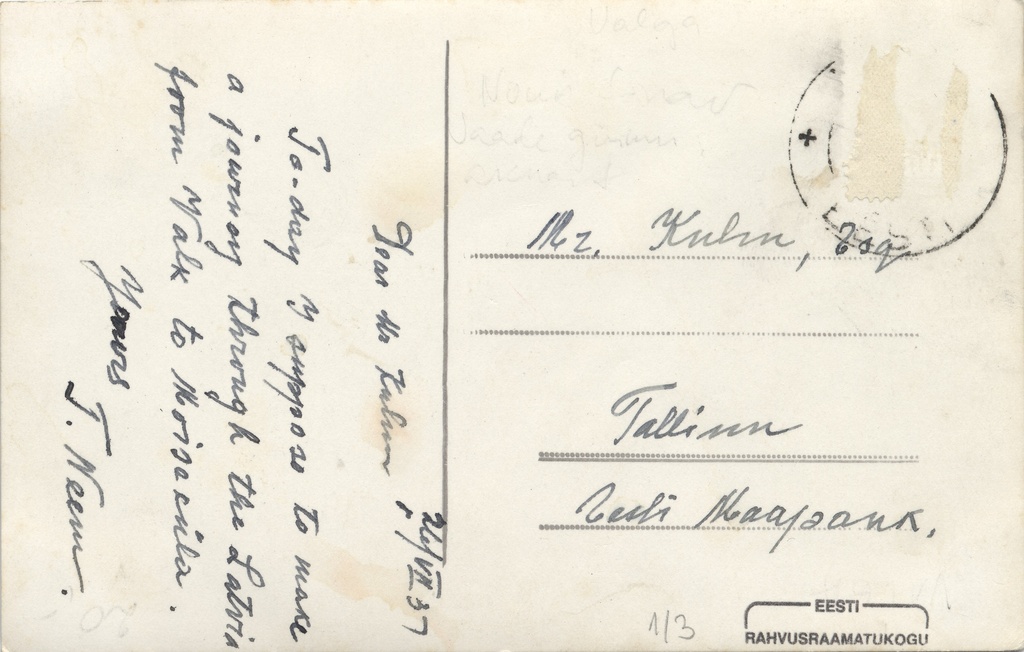 24/VII 37
Dear Mr Kulm
To-day y suppose to make
a journey through the Latvia
from Valk to Moisaküla.
Yours
T. Neem.
Mr. Kulm,
Tallinn
Eesti Maapank.
EESTI
1/3
EESTI
RAHVUSRAAMATUKOGU
Valga